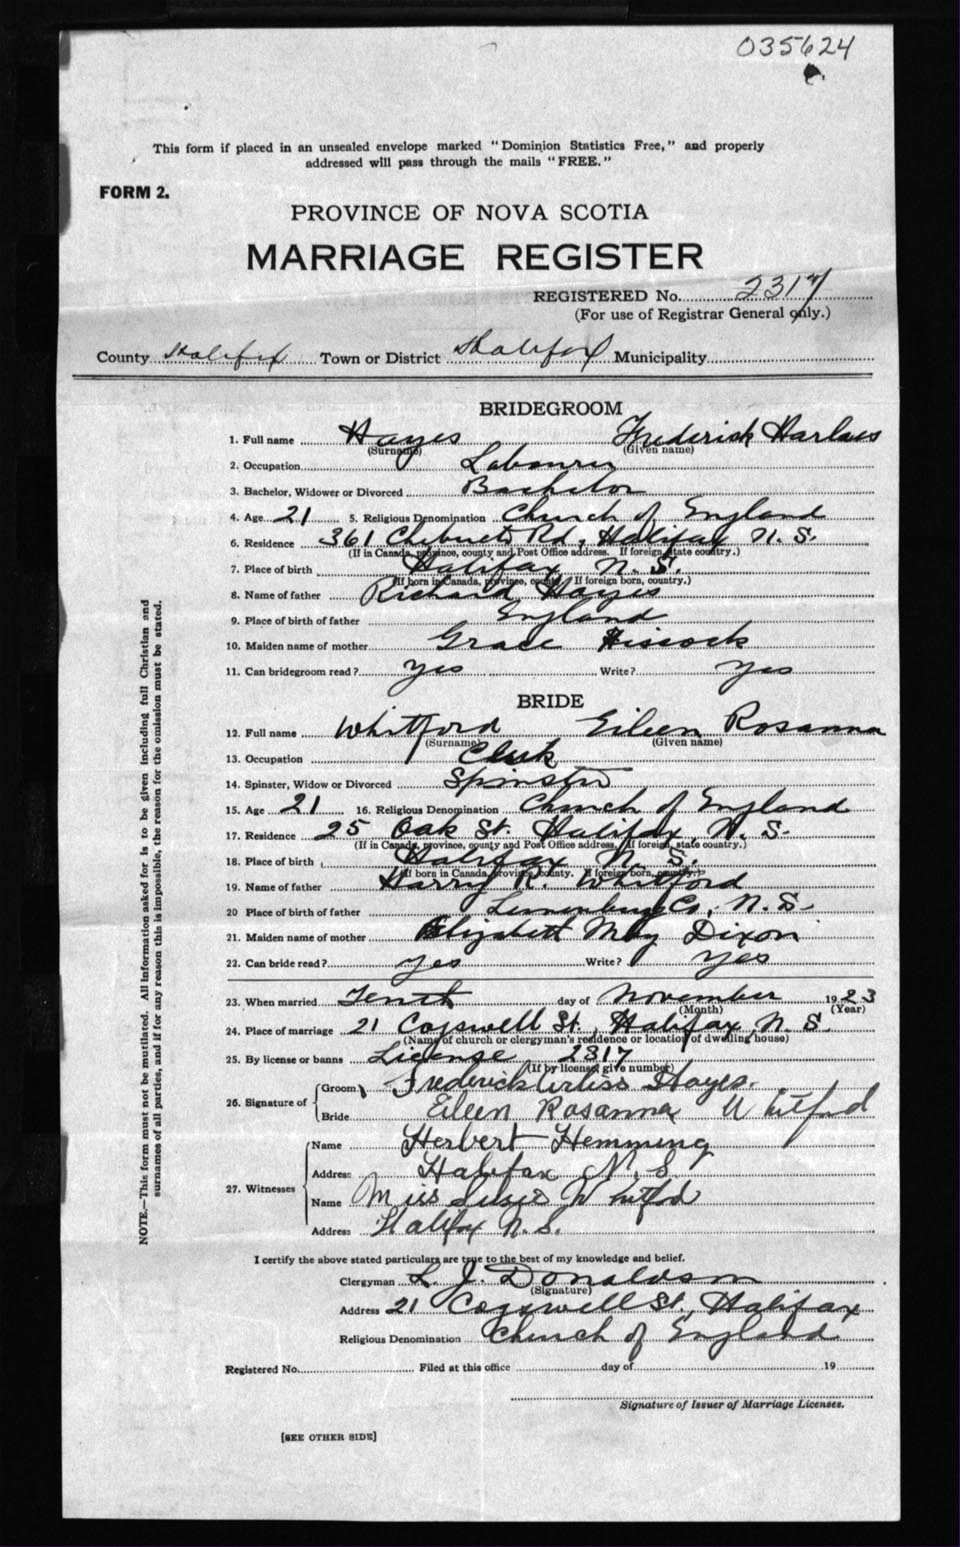 035624
This form if placed in an unsealed envelope marked "Dominion Statistics Free," and properly
addressed will pass through the mails "FREE."
FORM 2.
PROVINCE OF NOVA SCOTIA
MARRIAGE REGISTER
REGISTERED No. 2317
(For use of Registrar General only.)
County Halifax Town or District Halifax Municipality
BRIDEGROOM
1. Full name Hayes Frederick
(Surname) (Given name)
2. Occupation Labourer
3. Bachelor, Widower or Divorced Bachelor
4. Age 21 5. Religious Denomination Church of England
6. Residence 361 Chebucto Rd, Halifax N. S.
(If in Canada, province, county and Post Office address. If foreign, state country.)
7. Place of birth Halifax N. S.
(If born in Canada, province, county. If foreign born, country.)
8. Name of father Richard Hayes
9. Place of birth of father England
10. Maiden name of mother Grace Hiscock
11. Can bridegroom read? Yes Write? Yes
BRIDE
12. Full name Whitford Eileen Rosanna
(Surname) (Given name)
13. Occupation Clerk
14. Spinster, Widow or Divorced Spinster
15. Age 21 16. Religious Denomination Church of England
17. Residence 25 Oak St. Halifax, N. S.
(If in Canada, province, county and Post Office address. If foreign, state country.)
18. Place of birth Halifax N. S.
(If born in Canada, province, county. If foreign born, country.)
19. Name of father Harry R. Whitford
20 Place of birth of father Lunenburg Co, N. S.
21. Maiden name of mother Elizabeth May Dixon
22. Can bride read? Yes Write? Yes
23. When married Tenth day of November 1923
(Month) (Year)
24. Place of marriage 21 Cogswell St., Halifax, N. S.
(Name of church or clergyman's residence or location of dwelling house)
25. By license or banns License 2317
(If by license, give number)
26. Signature of Groom Frederick Arliss Hayes.
Bride Eileen Rosanna Whitford
27. Witnesses Name Herbert Hemming
Address Halifax N. S
Name Miss Susie Whitford
Address Halifax N. S.
I certify the above stated particulars are true to the best of my knowledge and belief.
Clergyman L. J. Donaldson
(Signature)
Address 21 Cogswell St., Halifax
Religious Denomination Church of England
Registered No. Filed at this office day of 19
Signature of Issuer of Marriage Licenses.
[SEE OTHER SIDE]
NOTE.—This form must not be mutilated. All information asked for is to be given including full Christian and
surnames of all parties, and if for any reason this is impossible, the reason for the omission must be stated.